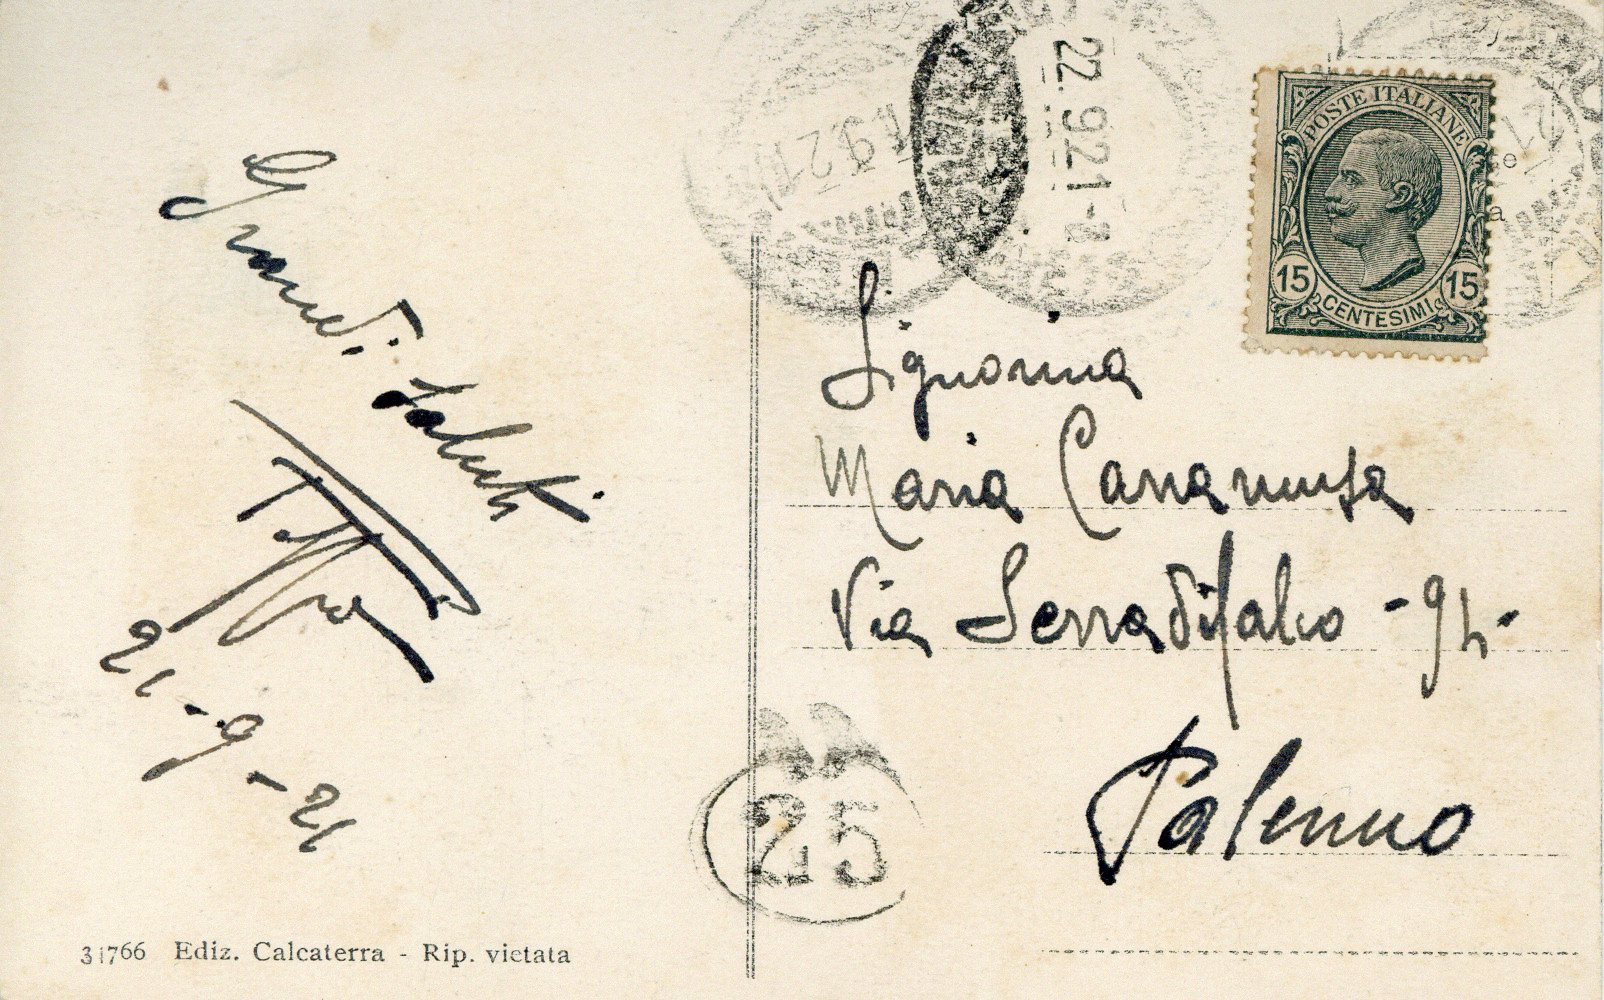 Grandi saluti
21-9-21
31766 Ediz. Calcaterra - Rip. vietata
22.9.21-8
POSTE ITALIANE
15 15
CENTESIMI
Signorina
Maria
Via Serradifalco - 94 -
Palermo
25